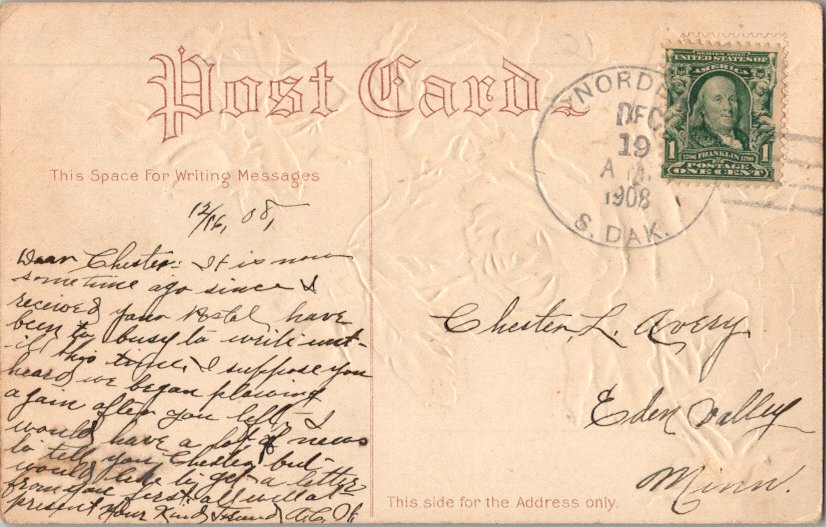 Post Card
This Space For Writing Messages
12/16, 08,
Dear Chester: It is now
some time ago since I
received your Postal, have
been to busy to write unt-
il this time, I suppose you
heard we began plowing
again after you left, I
would have a lot of news
to tell you Chester but
would like to get a letter
from you first. all well at
present your Kind Friend A.C.
NORDE
DEC
19
A.M.
1908
S. DAK.
SERIES 1902
UNITED STATES OF
AMERICA
1 1
1706 FRANKLIN 1790
POSTAGE
ONE CENT
Chester, L. Avery
Eden Valley
Minn.
This side for the Address only.